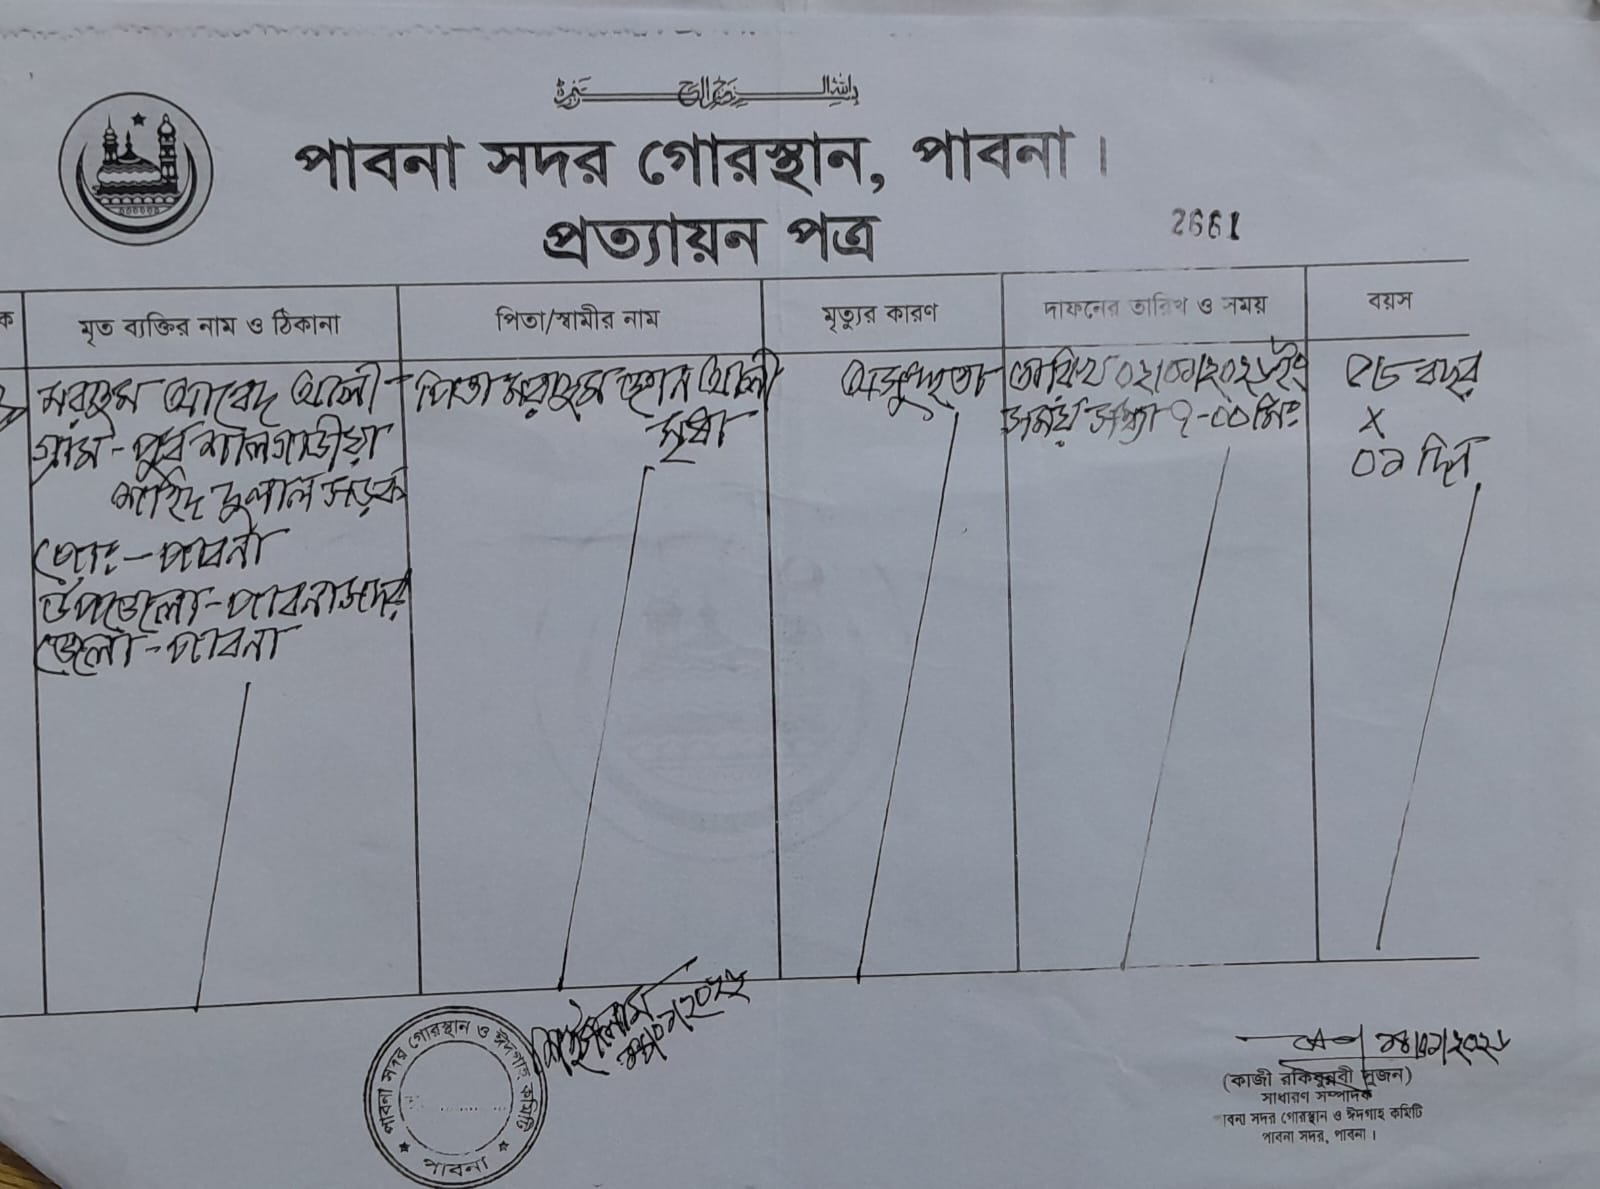 পাবনা সদর গোরস্থান, পাবনা ।
প্রত্যায়ন পত্র
2661
ক
মৃত ব্যক্তির নাম ও ঠিকানা
পিতা/স্বামীর নাম
মৃত্যুর কারণ
দাফনের তারিখ ও সময়
বয়স
মরহুম আবেদ আলী
গ্রাম - পুর্ব শালগাড়ীয়া
শহিদ দুলাল সড়ক
পোঃ - পাবনা
উপজেলা - পাবনা সদর
জেলা - পাবনা
পিতা মরহুম আলী
মৃধা
অসুস্থতা
তারিখ
সময় সন্ধ্যা ৭-০০ মিঃ
বছর
X
০১ দিন
পাবনা সদর গোরস্থান ও ঈদগাহ কমিটি
পাবনা
(কাজী রকিবুন্নবী সুজন)
সাধারণ সম্পাদক
াবনা সদর গোরস্থান ও ঈদগাহ কমিটি
পাবনা সদর, পাবনা ।